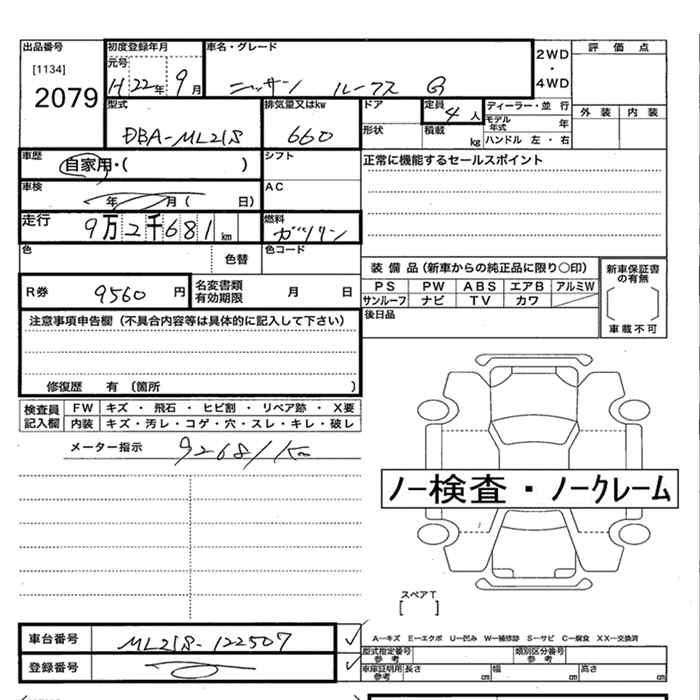 出品番号 初度登録年月 車名・グレード 2WD・4WD 評価点
[1134] 元号 H22年 9月 ニッサン ルークス G
2079
型式 排気量又はkw ドア 定員 4人 ディーラー・並行 外装 内装
DBA-ML21S 660 形状 積載 kg モデル年式 年
ハンドル 左・右
車歴 自家用・( ) シフト 正常に機能するセールスポイント
車検 年 月( 日) AC
走行 9万2千681km 燃料 ガソリン
色 色替 色コード
装備品(新車からの純正品に限り○印) 新車保証書の有無
R券 9560円 名変書類有効期限 月 日 PS PW ABS エアB アルミW
サンルーフ ナビ TV カワ
後日品 車載不可
注意事項申告欄(不具合内容等は具体的に記入して下さい)
修復歴 有(箇所 )
検査員記入欄 FW キズ・飛石・ヒビ割・リペア跡・X要
内装 キズ・汚レ・コゲ・穴・スレ・キレ・破レ
メーター指示 92681Km
ノー検査・ノークレーム
スペアT
[ ]
車台番号 ML21S-122507 ✓
A−キズ E−エクボ U−凹み W−補修跡 S−サビ C−腐食 XX−交換済
登録番号 ✓ 型式指定番号参考 類別区分番号参考
車庫証明用参考 長さ cm 幅 cm 高さ cm